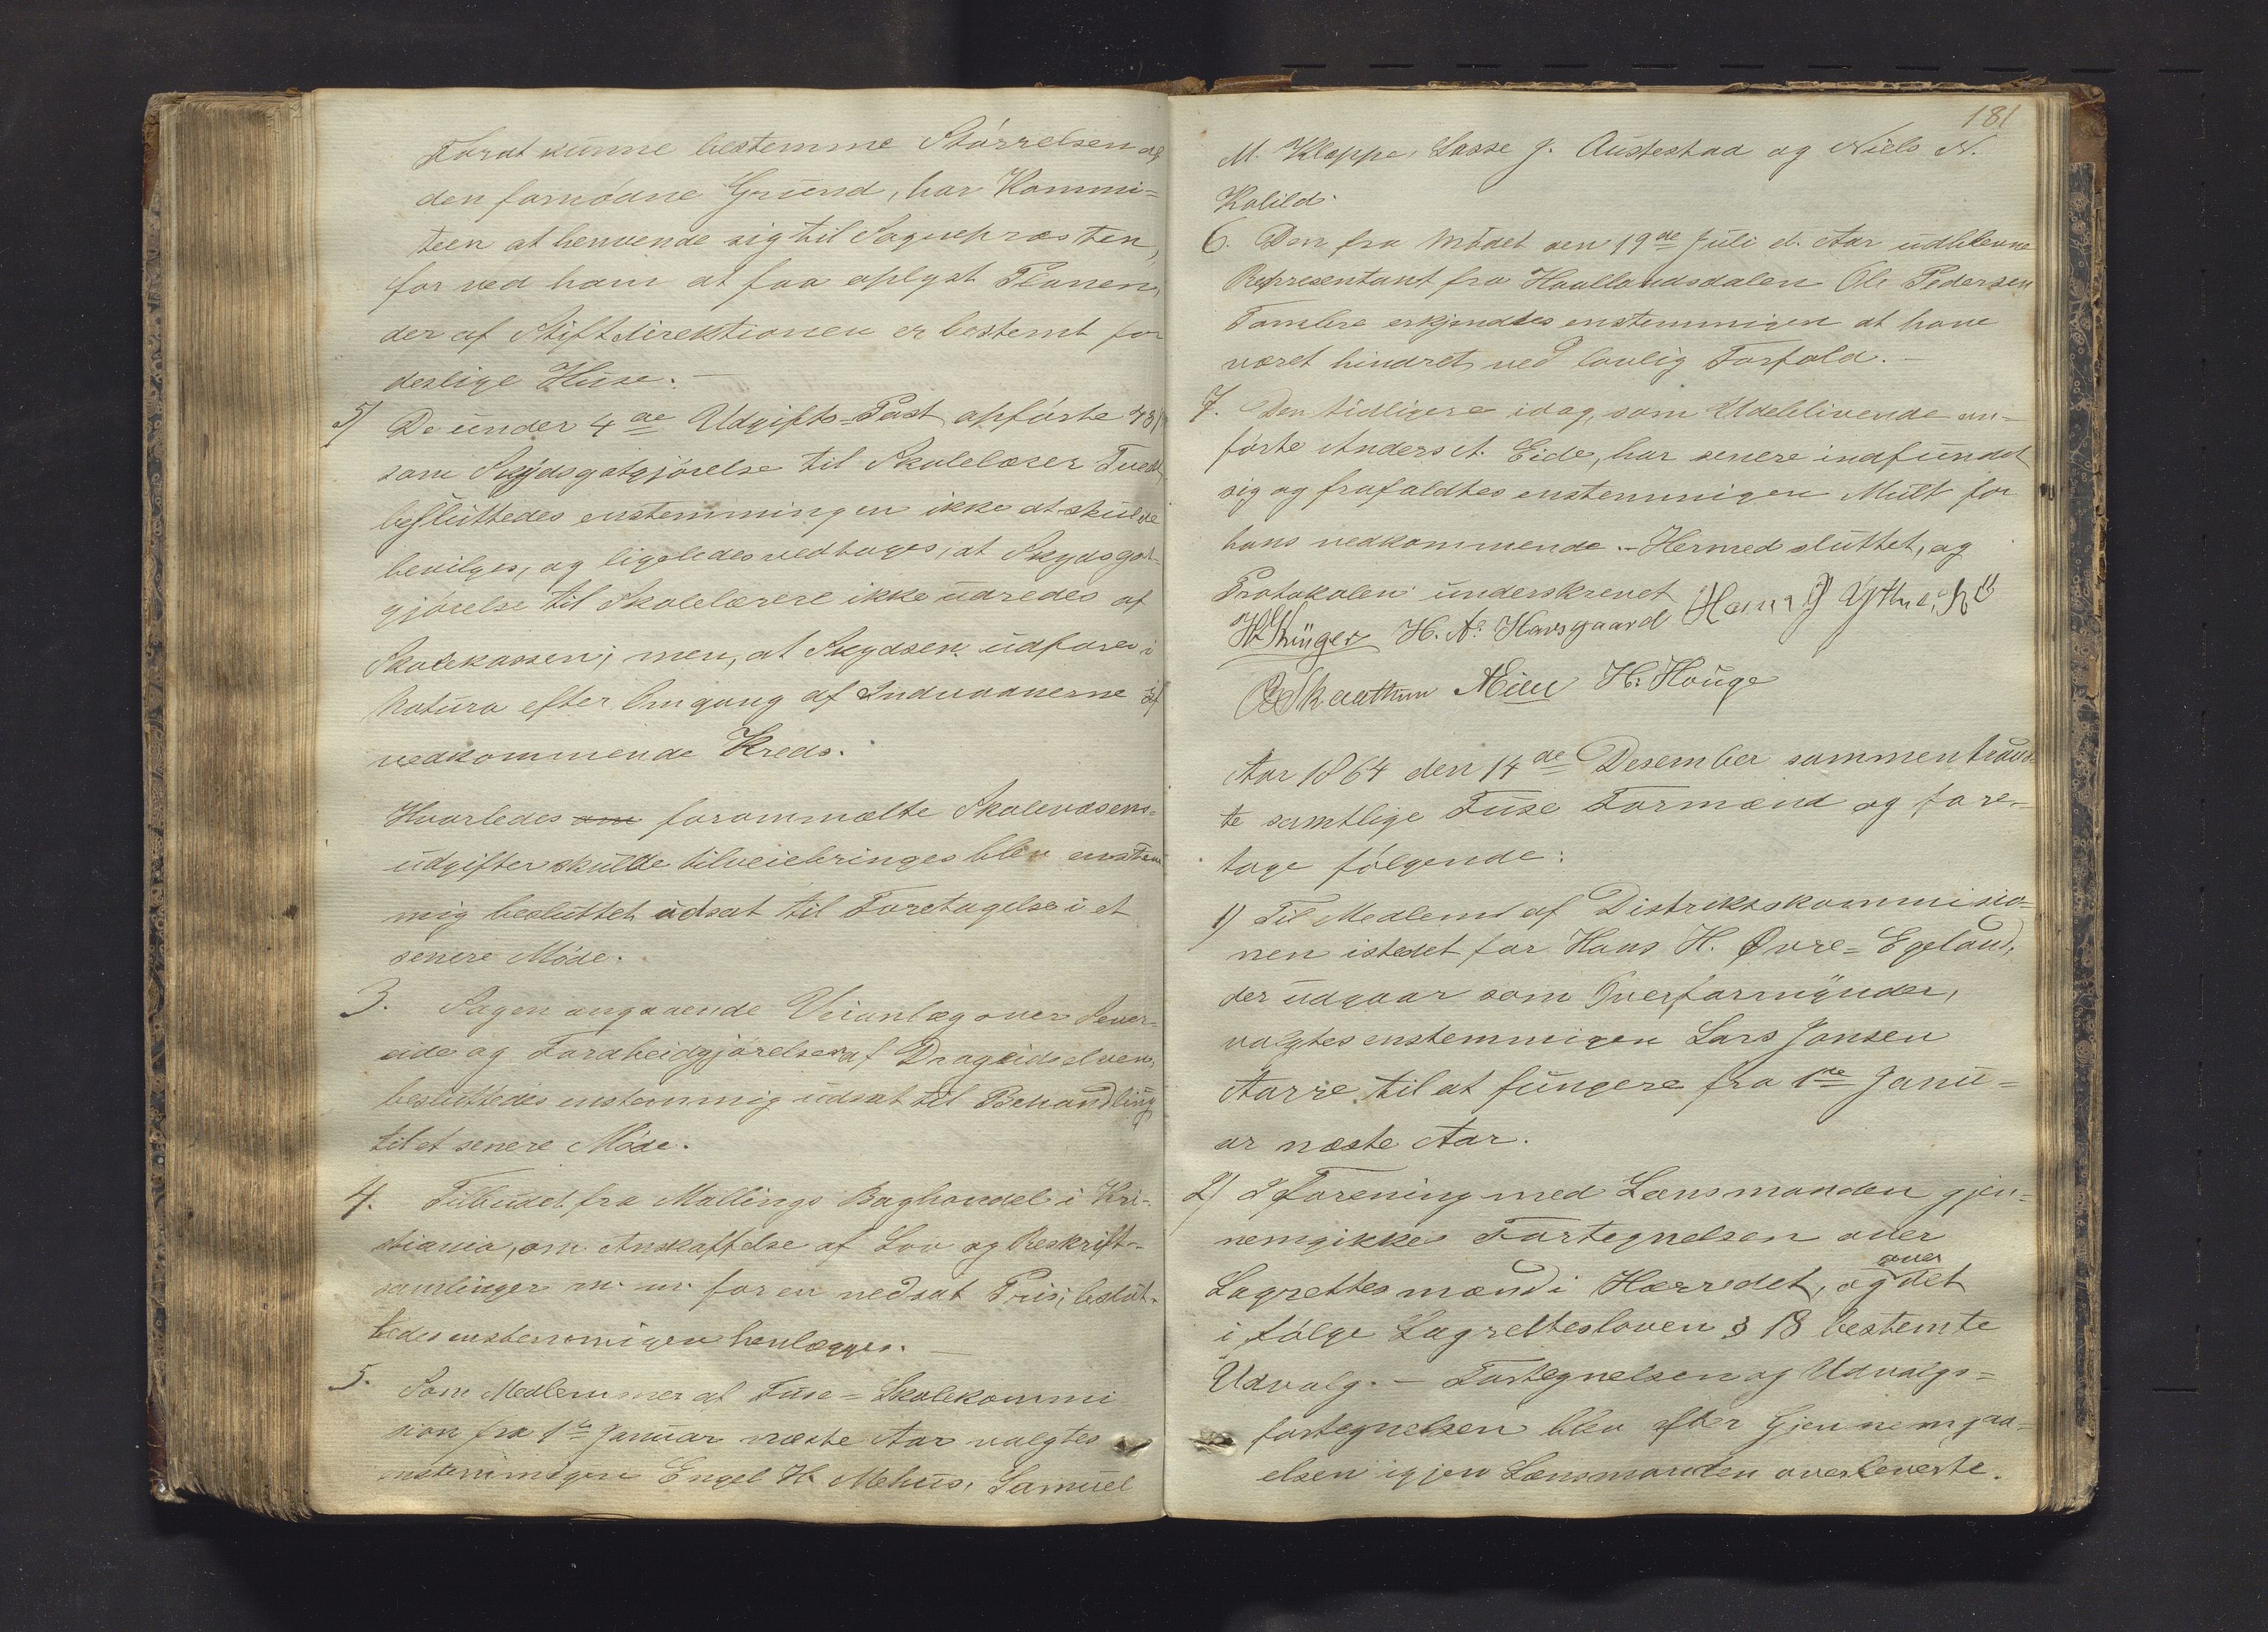 Forat kunne bestemme Størrelsen af
den fornødne Grund, har Kommi=
teen at henvende sig til Sognepræsten,
for ved ham at faa oplyst Planen,
der af Stiftdirektionen er bestemt for
deslige Huse. —
5) De under 4de Udgifts-Post opførte
som Skydsgotgjørelse til Skolelærer Tvedt,
besluttedes enstemmingen ikke at skulde
bevilges, og ligeledes vedtoges, at Skydsgot-
gjørelse til Skolelærere ikke udredes af
Skolekassen; men, at Skydsen udføres i
Natura efter Omgang af Indvaanerne af
vedkommende Kreds.
Hvorledes om forommælte Skolevæsens=
udgifter skulde tilveiebringes blev enstem
mig besluttet udsat til Foretagelse i et
senere Møde.
3. Sagen angaaende Veianlæg over Sever=
eide og Farabeidgjørelsen af Drageidselven,
besluttedes enstemmig udsat til Behandling
til et senere Møde.
4. Tilbudet fra Mallings Boghandel i Kri-
stiania, om Anskaffelse af Lov og Reskript-
samlinger m. m. for en nedsat Pris; beslut-
tedes enstemmigen henlægges. —
5. Som Medlemmer af Fuse=Skolekommi
sion fra 1ste Januar næste Aar valgtes
enstemmigen Engel H. Mehus, Samuel
181
M. Kloppe, Lasse J. Austestad og Niels N.
Kolild.
6. Den fra Mødet den 19de Juli d. Aar udeblevne
Representant fra Haallandsdalen Ole Pedersen
Tombre erkjendtes enstemmigen at have
været hindret ved lovlig Forfald. —
7. Den tidligere idag, som Udeblivende an=
førte Anders A. Eide, har senere indfundet
sig og frafaldtes enstemmigen Mult for
hans vedkommende. — Hermed sluttet, og
Protokolen underskrevet
H Krüger H. A. Havsgaard Hans J
Skaathun AEide H. Houge
Aar 1864 den 14de Desember sammentraad=
te samtlige Fuse Formænd og fore-
toge følgende:
1) Til Medlem af Distriktskommisio=
nen istedet for Hans H. Øvre=Egeland,
der udgaar som Overformynder,
valgtes enstemmigen Lars Jonsen
Aarre til at fungere fra 1ste Janu=
ar næste Aar.
2) I Forening med Lensmanden gjen=
nemgikkes Fortegnelsen over
Lagrettesmænd i Herredet, og over det
i følge Lagretteloven § 18 bestemte
Udvalg. — Fortegnelsen og Udvalgs=
fortegnelsen blev efter Gjennemgaa-
elsen igjen Lensmanden overleverte.